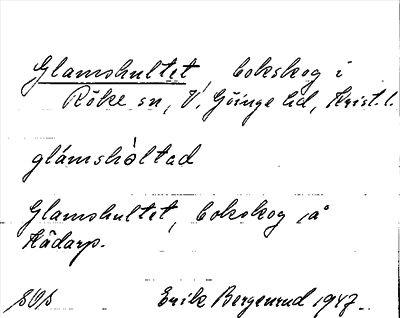 Glamshultet, bokskog i
Röke sn, V. Göinge hd, Krist. l.
glámshòltad
Glamshultet, bokskog på
Kådarp.
Erik Bergenrud 1947